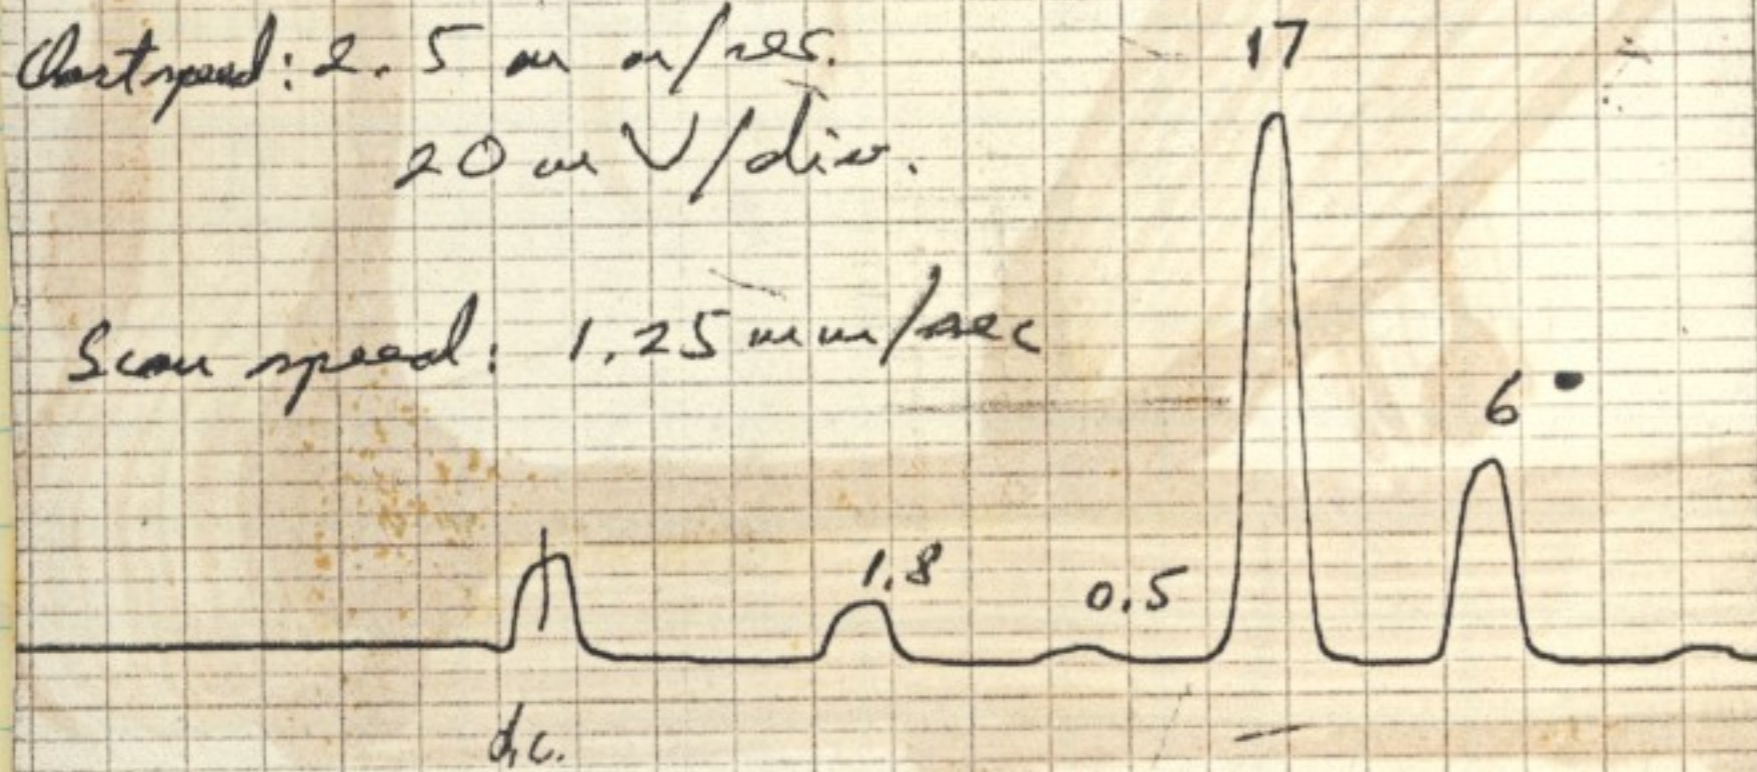 Chart speed: 2.5 mm/sec.
20 mV/div.
Scan speed: 1.25 mm/sec
17
6
1.8
0.5
d.c.